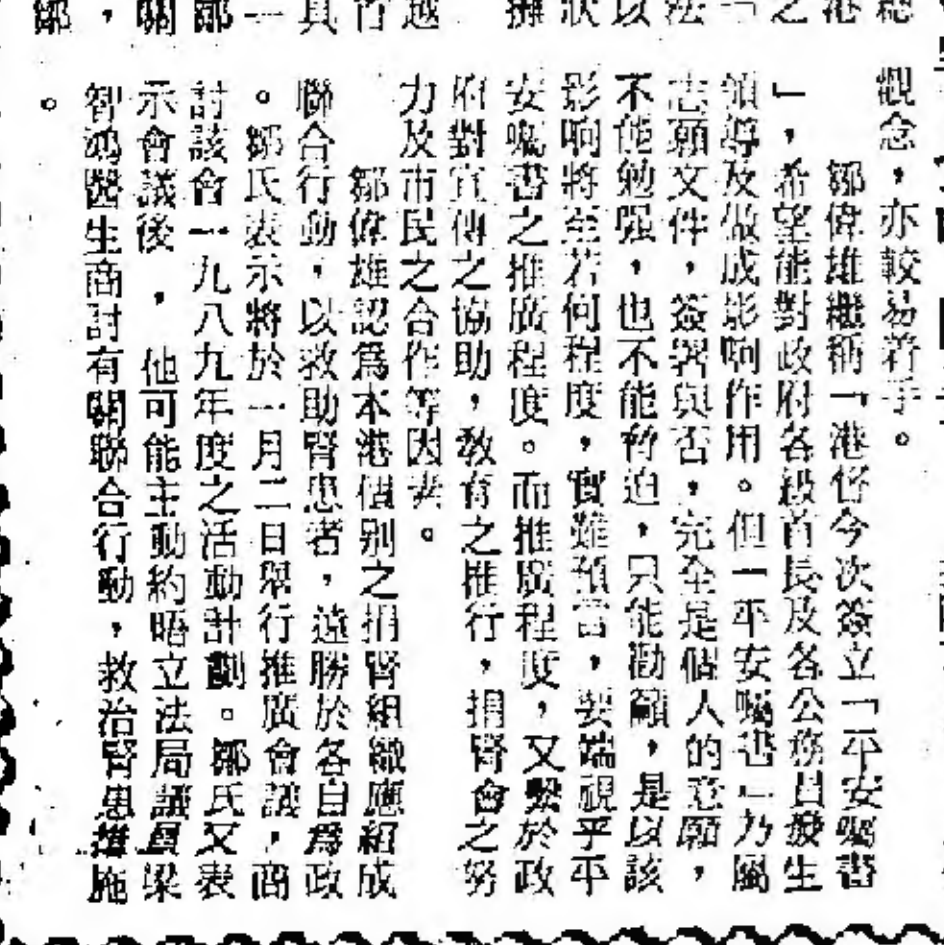 總
港
之
「
法
以
狀
攤
越
首
其
一
鄒
關
，
鄒
觀念，亦較易着手。
鄒偉雄繼稱「港督今次簽立「平安囑書
」，希望能對政府各級首長及各公務員發生
領導及做成影响作用。但「平安囑書」乃屬
志願文件，簽署與否，完全是個人的意願，
不能勉强，也不能脅迫，只能勸籲，是以該
影响將至若何程度，實難預言，要端視乎平
安囑書之推廣程度。而推廣程度，又繫於政
府對宣傳之協助，教育之推行，捐腎會之努
力及市民之合作等因素。
鄒偉雄認爲本港個別之捐腎組織應組成
聯合行動，以救助腎患者，遠勝於各自爲政
。鄒氏表示將於一月二日舉行推廣會議，商
討該會一九八九年度之活動計劃。鄒氏又表
示會議後，他可能主動約晤立法局議員梁
智鴻醫生商討有關聯合行動，救治腎患措施
。